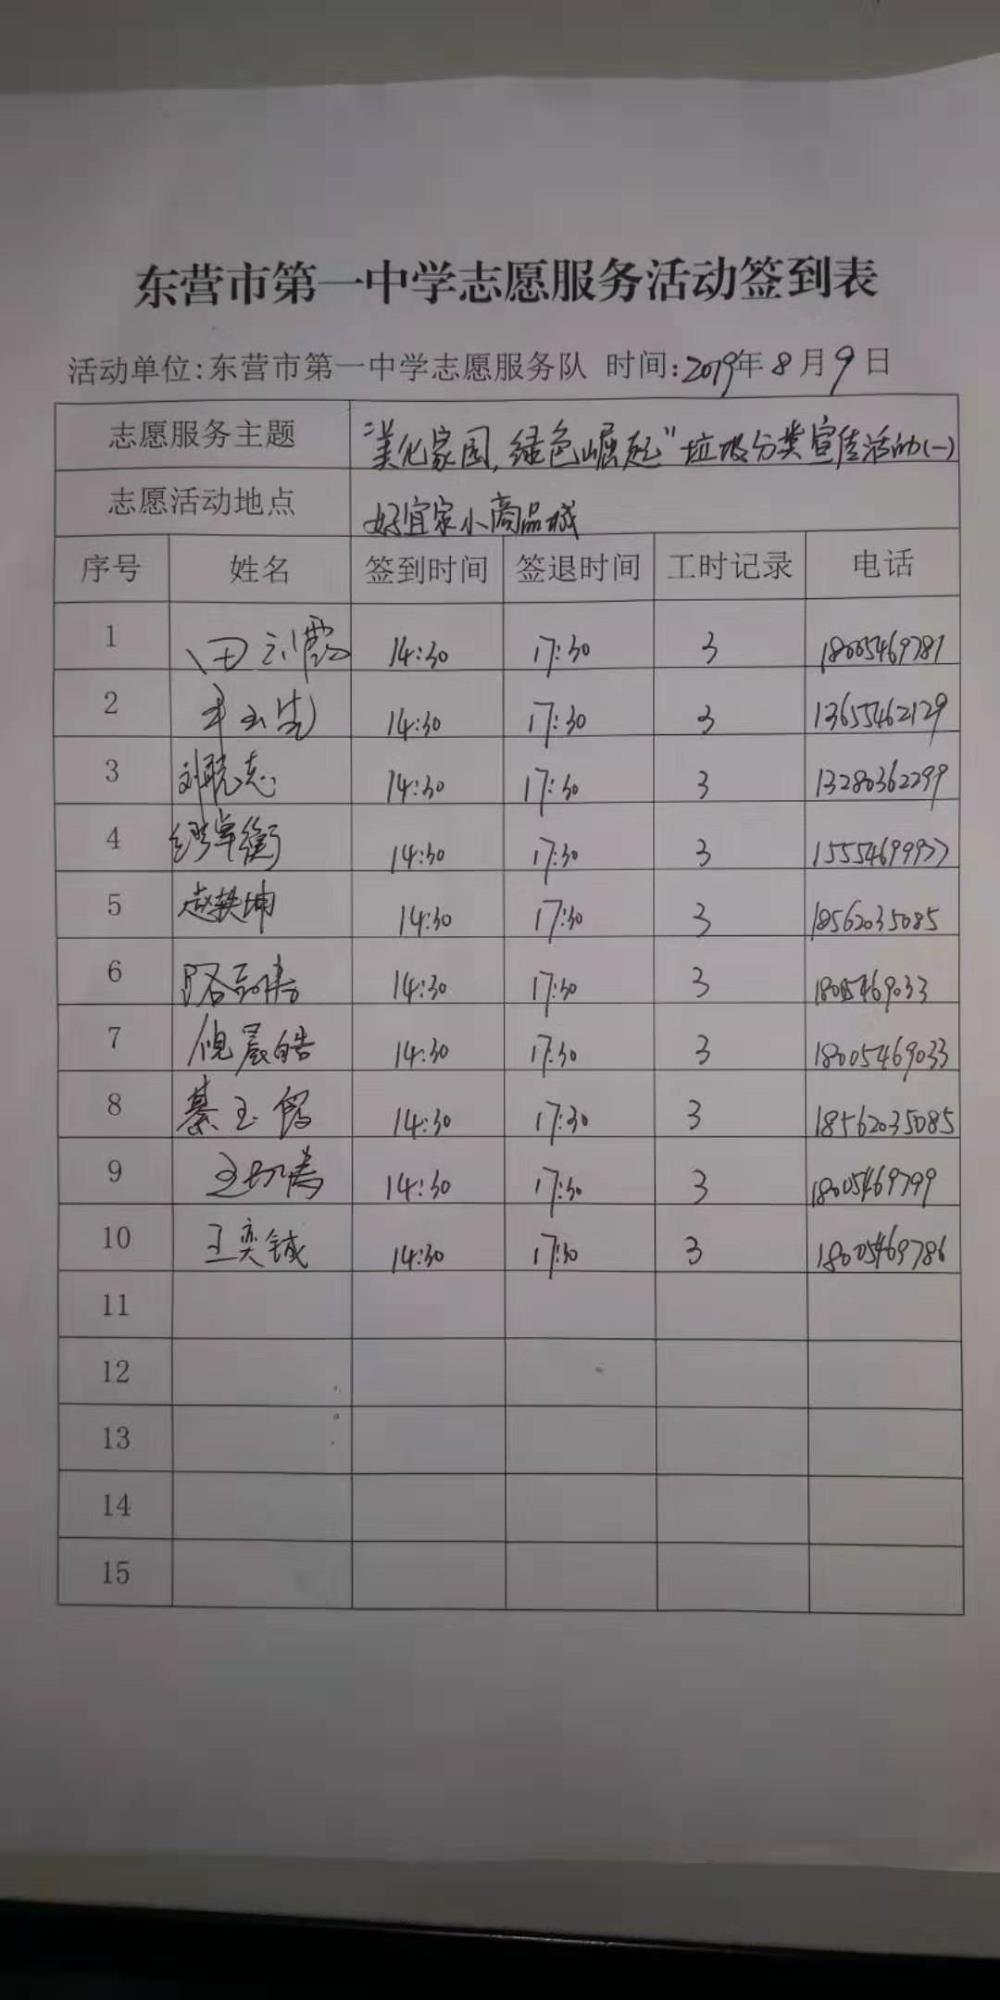 东营市第一中学志愿服务活动签到表
活动单位:东营市第一中学志愿服务队 时间:2019年8月9日
志愿服务主题 “美化家园,绿色崛起”垃圾分类宣传活动(一)
志愿活动地点 好宜家小商品城
序号 姓名 签到时间 签退时间 工时记录 电话
1 14:30 17:30 3 18005469781
2 14:30 17:30 3 13655462129
3 刘晓志 14:30 17:30 3 13280362299
4 缪卓衡 14:30 17:30 3 15554699937
5 赵轶坤 14:30 17:30 3 18562035085
6 14:30 17:30 3 18005469033
7 倪晨皓 14:30 17:30 3 18005469033
8 綦玉 14:30 17:30 3 18562035085
9 14:30 17:30 3 18005469799
10 王奕铖 14:30 17:30 3 18005469786
11
12
13
14
15